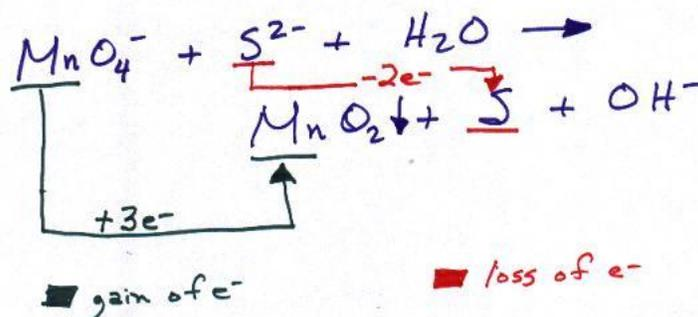 MnO₄⁻ + S²⁻ + H₂O →
-2e-
MnO₂↓ + S + OH⁻
+3e-
gain of e-
loss of e-